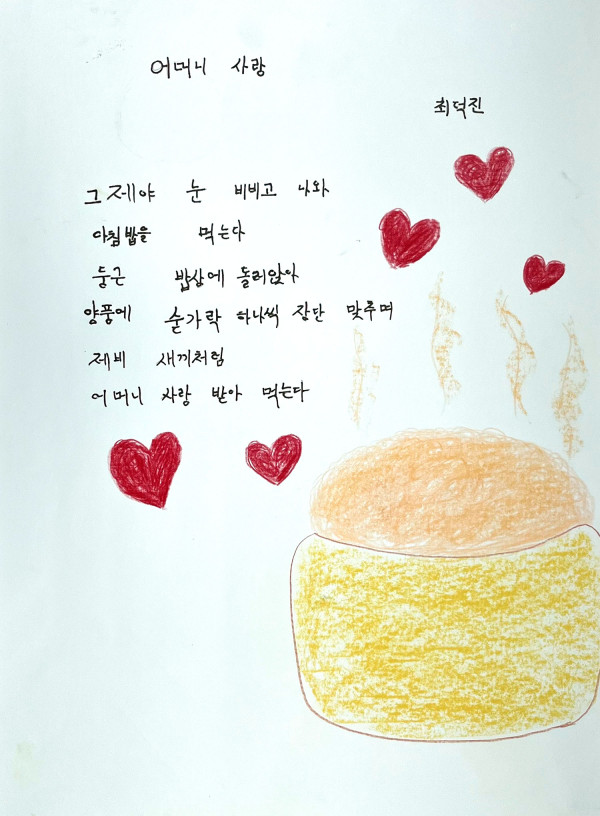 어머니 사랑
최덕진
그제야 눈 비비고 나와
아침밥을 먹는다
둥근 밥상에 돌려앉아
양푼에 숟가락 하나씩 장단 맞추며
제비 새끼처럼
어머니 사랑 받아 먹는다